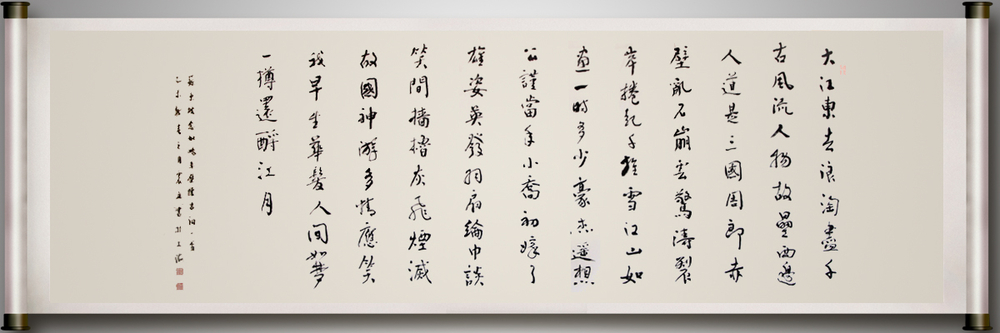 大江東去浪淘盡千
古風流人物故壘西邊
人道是三國周郎赤
壁亂石崩雲驚濤裂
岸捲起千堆雪江山如
畫一時多少豪杰遥想
公謹當年小喬初嫁了
雄姿英發羽扇綸巾談
笑間檣櫓灰飛煙滅
故國神游多情應笑
我早生華髮人間如夢
一樽還酹江月
蘇東坡念奴嬌赤壁懷古詞一首
乙未